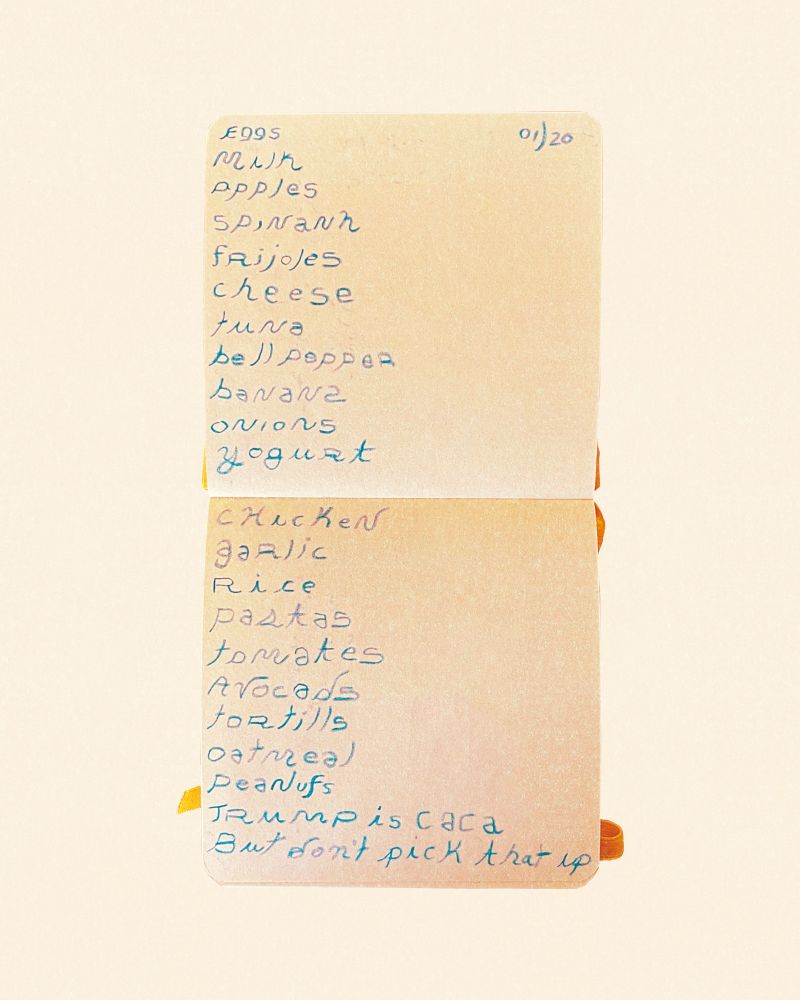 EggS
01/20
Milk
apples
spinanh
frijoles
cheese
tuna
bell pepper
banana
onions
yogurt
CHicKeN
garlic
Rice
pastas
tomates
Avocads
tortills
oatmeal
Peanuts
TRUMP is caca
But don't pick that up